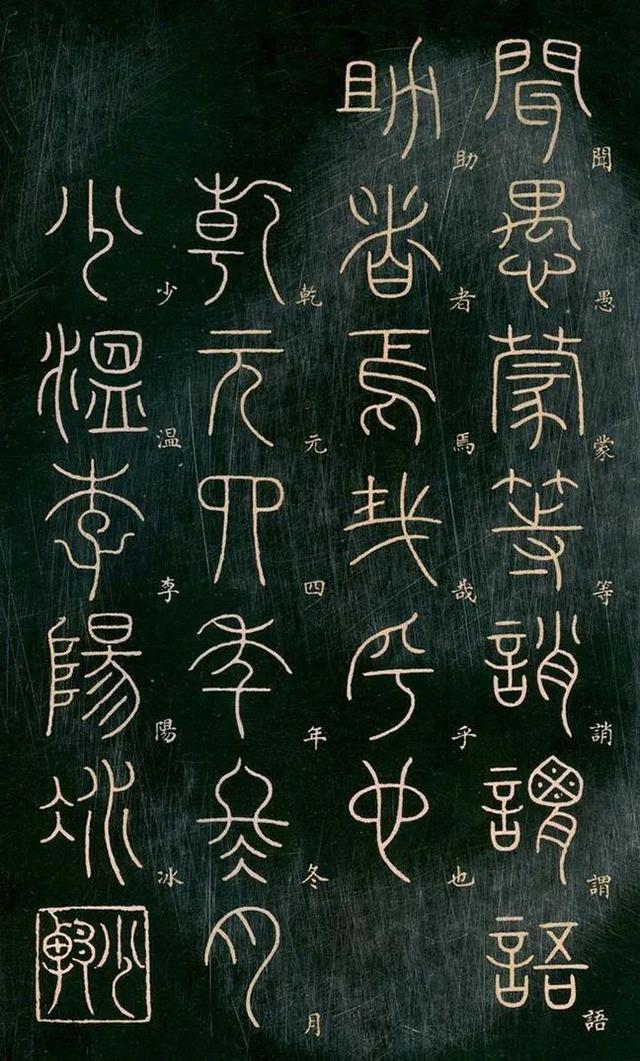 聞愚蒙等誚謂語
聞愚蒙等誚謂語
助者焉哉乎也
助者焉哉乎也
乾元四年冬月
乾元四年冬月
少溫李陽冰
少温李陽冰